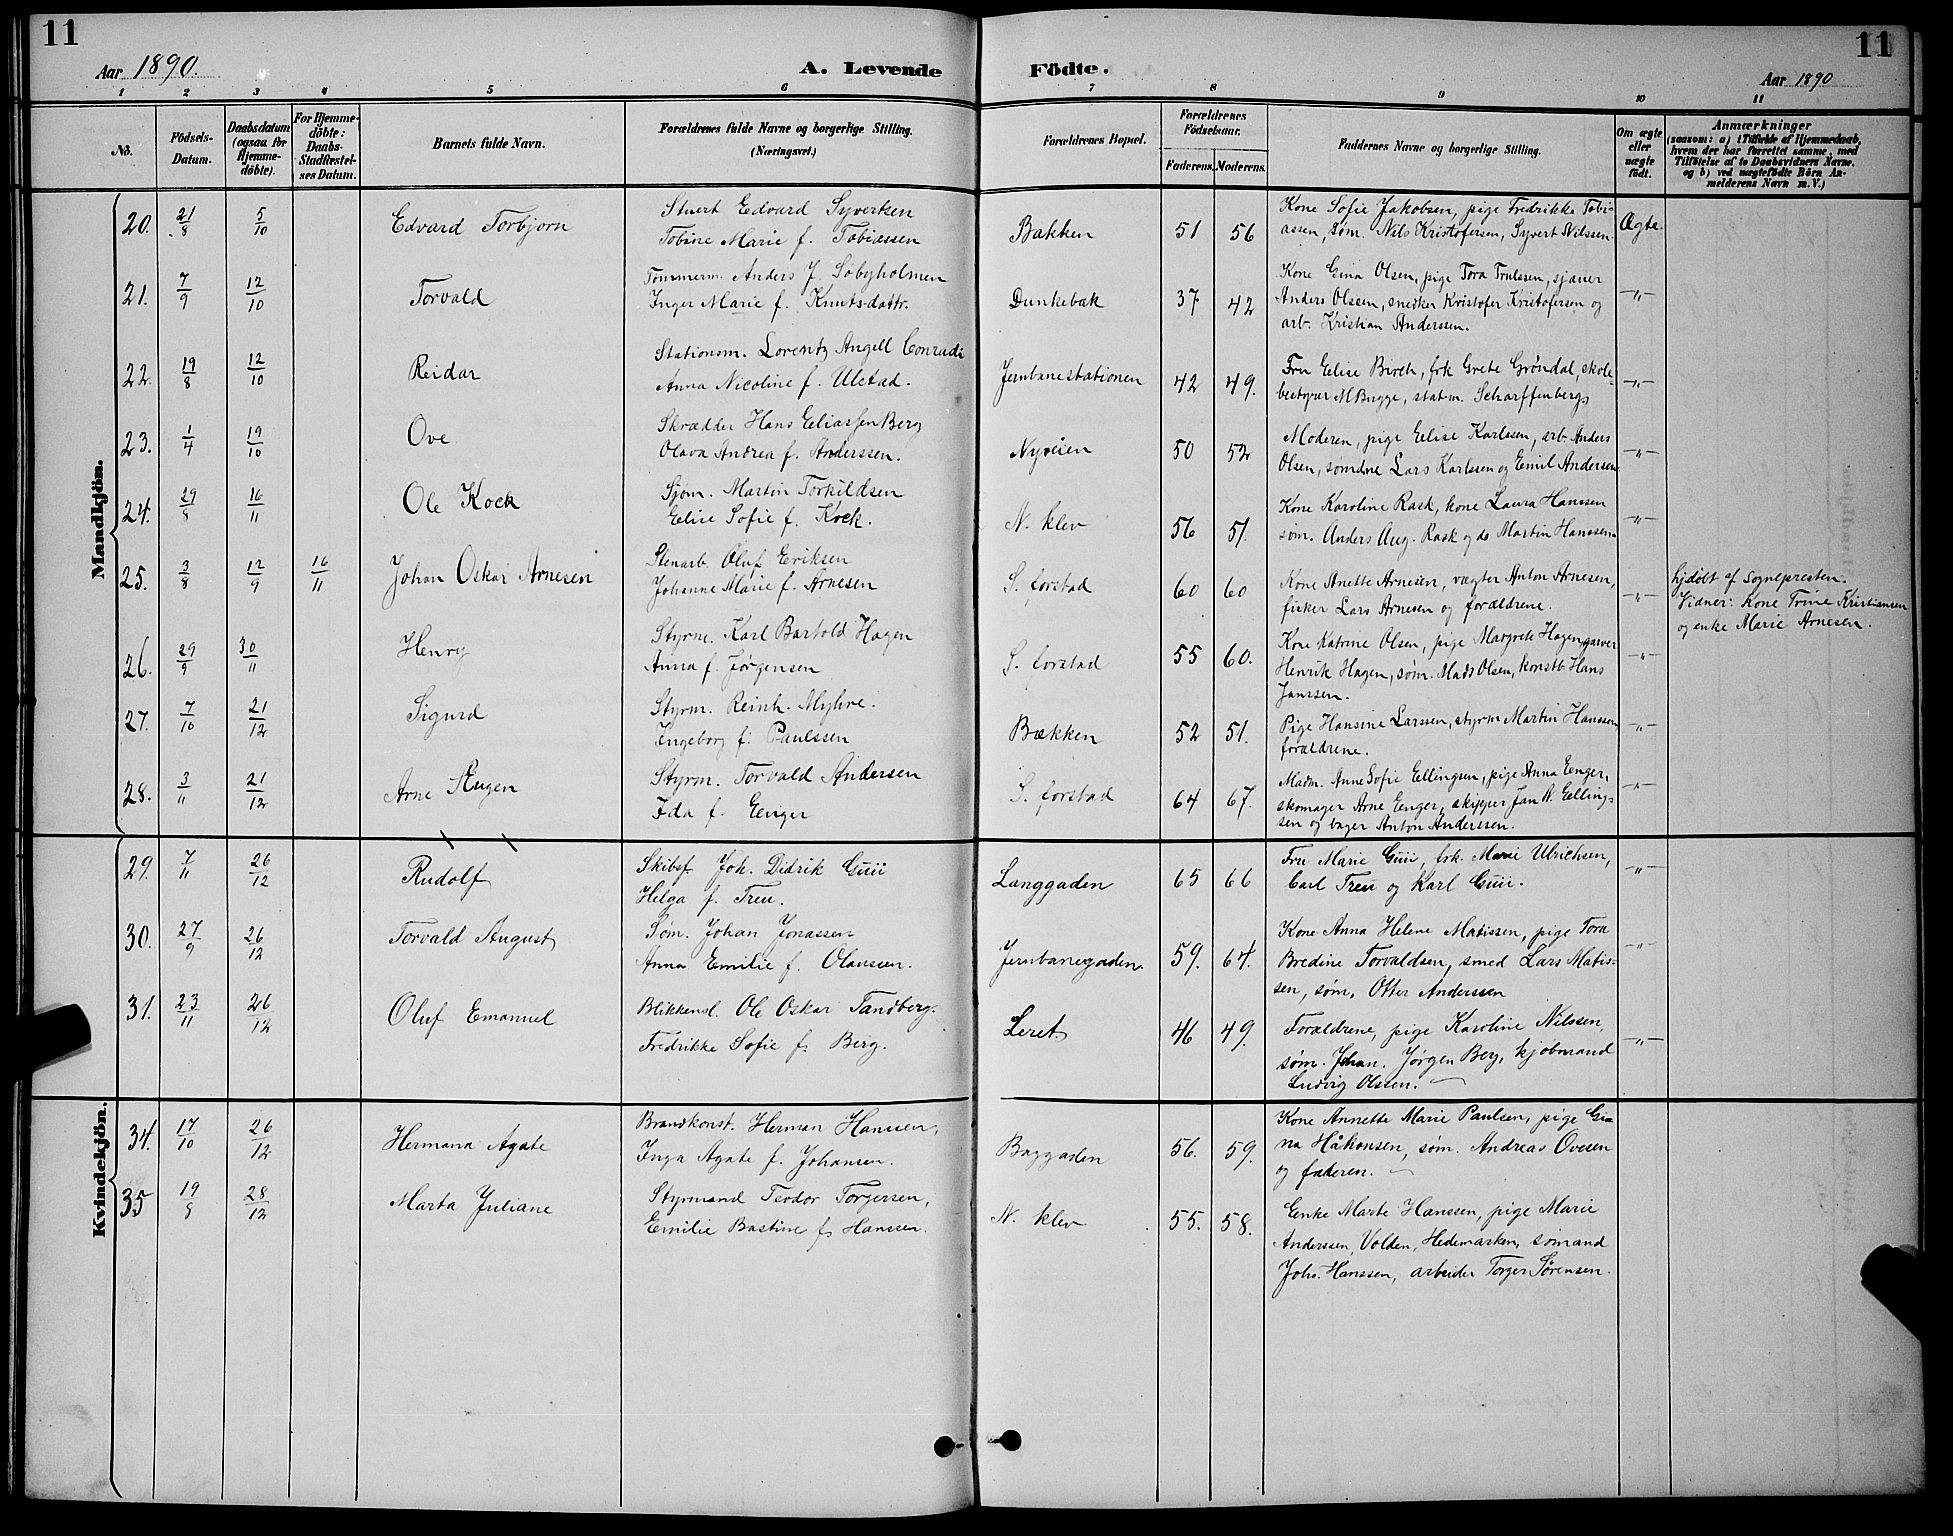 11
11
Aar 1890.
A. Levende
Födte.
Aar 1890
1 2 3 4 5 6 7 8 9 10 11
No.
Födsels-
Datum.
Daabsdatum
(ogsaa for
Hjemme-
döbte).
For Hjemme-
döbte:
Daabs-
Stadfæstel-
ses Datum.
Barnets fulde Navn.
Forældrenes fulde Navne og borgerlige Stilling.
(Næringsvei.)
Forældrenes Bopæl.
Forældrenes
Födselsaar.
Faderens.
Moderens.
Faddernes Navne og borgerlige Stilling.
Om ægte
eller
uægte
født.
Anmærkninger
(saasom: a) i Tilfælde af Hjemmedaab,
hvem der har forrettet samme, med
Tilföielse af to Daabsvidners Navne,
og b) ved uægtefödte Börn An-
melderens Navn m. V.)
Mandkjön.
20. 21/8 5/10 Edvard Torbjørn
Stuert Edvard Syversen
Tobine Marie f. Tobiassen
Bakken 51 56
Kone Sofie Jakobsen, pige Fredrikke Tobi-
assen, søm. Nils Kristofersen, Syvert Nilssen
Ægte.
21. 7/9 12/10 Torvald
Tømmerm. Anders J. Søbyholmen
Inger Marie f. Knuts-dattr.
Dunkebak 37 42
Kone Gina Olsen, pige Tora Trulssen, sjauer
Anders Olssen, snedker Kristofer Kristofersen og
arb. Kristian Anderssen.
-"-
22. 19/8 12/10 Reidar
Stationsm. Lorentz Angell Conradi
Anna Nicoline f. Ulstad.
Jernbanestationen 42 49.
Fru Elise Birch, frk Grete Grøndal, skole-
bestyrer M Bugge, stat-m. Scharffenberg
-"-
23. 1/4 19/10 Ove
Skrædder Hans Eeliassen Berg
Olava Andrea f. Anderssen.
Nyveien 50 52
Moderen, pige Eelise Karlssen, arb. Anders
Olsen, sømdne Lars Karlssen og Emil Andersen
-"-
24. 29/8 16/11 Ole Kock
Sjøm. Martin Torkildsen
Eelise Sofie f. Kock.
N. klev 56 51
Kone Karoline Rask, kone Laura Hanssen
søm. Anders Aug. Rask og do Martin Hanssen
-"-
25. 3/8 12/9 16/11 Johan Oskar Arnesen
Stenarb. Oluf Eriksen
Johanne Marie f. Arnesen
S. forstad 60 60
Kone Anette Arnesen, vægter Anton Arnesen,
fisker Lars Arnesen og forældrene.
-"-
hjdøbt af Sognepresten.
Vidner: Kone Trine Kristiansen
og enke Marie Arnesen.
26. 29/9 30/11 Henry
Styrm. Karl Bartold Hagen
Anna f. Jørgensen
S. forstad 55 60.
Kone Katrine Olsen, pige Margrete Hagen, garver
Henrik Hagen, søm. Mads Olsen, konstb. Hans
Janssen.
-"-
27. 7/10 21/12 Sigurd
Styrm. Reinh. Myhre.
Ingeborg f. Paulssen
Bækken 52 51.
Pige Hansine Larssen, styrm Martin Hanssen
forældrene.
-"-
28. 3/11 21/12 Arne
Styrm. Torvald Andersen
Ida f. Eenger
S. forstad 64 67.
Madm. Anne Sofie Eellingsen, pige Anna Eenger,
skomager Arne Eenger, skipper Jan A. Eelling-
sen og bager Anton Anderssen.
-"-
29. 7/11 26/12 Rudolf
Skibsf Joh. Didrik
Helga f. Treu.
Langgaden 65 66
Fru Marie frk. Marie Ulrichsen,
Carl Treu og Karl
-"-
30. 27/9 26/12 Torvald August
Søm. Johan Jonassen
Anna Emilie f. Olaussen.
Jernbanegaden 59. 64.
Kone Anna Helene Matissen, pige Tora
Bredine Torvaldsen, smed Lars Matis-
sen, søm. Otter Anderssen
-"-
31. 23/11 26/12 Oluf Emanuel
Blikkensl. Ole Oskar Tandberg.
Fredrikke Sofie f. Berg.
Leret 46 49.
Forældrene, pige Karoline Nilssen,
søm. Johan Jørgen Berg, kjøbmand
Ludvig Olssen.
-"-
Kvindekjön.
34. 17/10 26/12 Hermana Agate
Brandkonst. Herman Hanssen,
Inga Agate f. Johansen.
Baggaden 56. 59.
Kone Annette Marie Paulsen, pige Gi-
na Håkonsen, søm. Andreas Ovesen
og faderen.
35 19/8 28/12 Marta Juliane
Styrmand Teodor Torgersen,
Emilie Bastine f. Hanssen.
N. klev 55. 58.
Eenke Marte Hanssen, pige Marie
Anderssen, Volden, Hedemarken, sømand
Johs. Hanssen, arbeider Torger Sørensen.